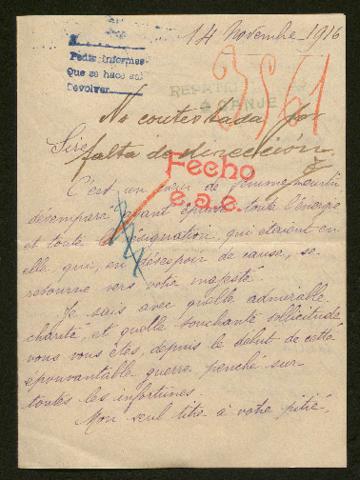 14 Novembre 1916
Pedir informes
Que se hace sa
Devolver
3861
CANJE
No contestada por
Sire
falta de dirección
Fecho
e.a.e.
C'est un de femme meurtri,
désemparé ayant épuisé toute l'énergie
et toute la résignation, qui étaient en
elle qui, en désespoir de cause, se
retourne vers votre majesté.
Je sais avec quelle admirable
charité, et quelle touchante sollicitude
vous vous êtes, depuis le début de cette
épouvantable guerre, penché sur
toutes les infortunes.
Mon seul titre à votre pitié,